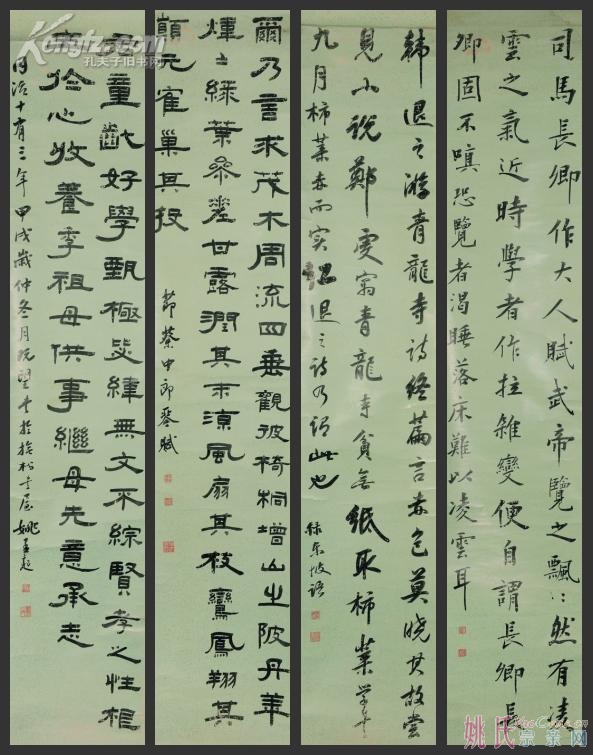 司馬長卿作大人賦武帝覽之飄〻然有凌
雲之氣近時學者作拉雜變便自謂長卿長
卿固不嗔恐覽者渴睡落床難以凌雲耳
韓退之游青龍寺詩終篇言赤色莫曉其故嘗
見小說鄭虔寓青龍寺貧無紙取柿葉學書
九月柿葉赤而實退之詩乃謂此也
錄東坡語
爾乃言求茂木周流四垂觀彼椅桐增山之陂丹華
煒〻綠葉參差甘露潤其末涼風扇其枝鸞鳳翔其
顛元寉巢其投
節蔡中郎琴賦
君童齔好學甄極毖緯無文不綜賢孝之性根
生於心收養季祖母供事繼母先意承志
同治十有三年甲戌歲仲冬月既望書於 姚孟起
Kongfz.com
孔夫子旧书网
姚氏宗亲网